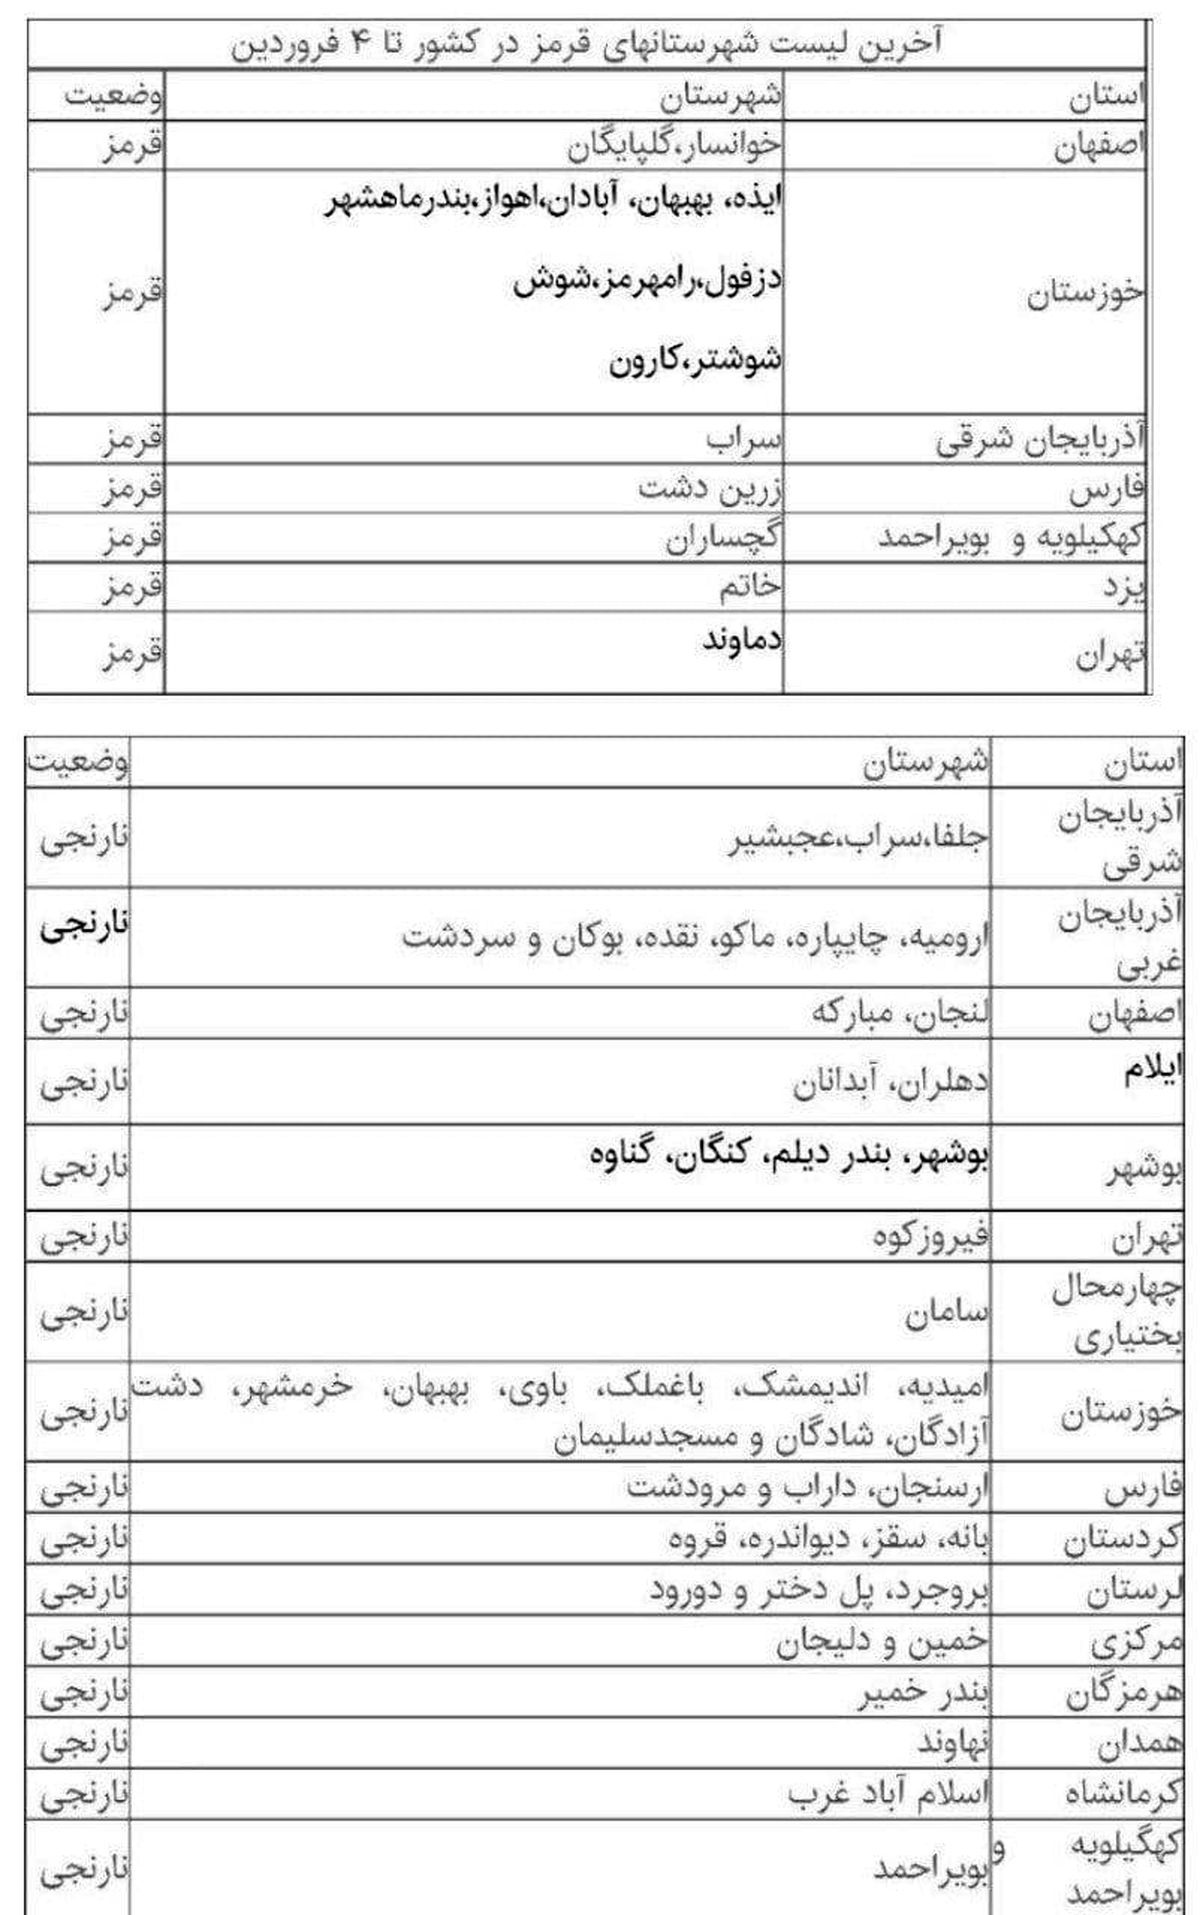 آخرین لیست شهرستانهای قرمز در کشور تا ۴ فروردین
استان شهرستان وضعیت
اصفهان خوانسار،گلپایگان قرمز
ایذه، بهبهان، آبادان،اهواز،بندرماهشهر
دزفول،رامهرمز،شوش
خوزستان قرمز
شوشتر،کارون
آذربایجان شرقی سراب قرمز
فارس زرین دشت قرمز
کهکیلویه و بویراحمد گچساران قرمز
یزد خاتم قرمز
تهران دماوند قرمز
استان شهرستان وضعیت
آذربایجان
شرقی جلفا،سراب،عجبشیر نارنجی
آذربایجان
غربی ارومیه، چایپاره، ماکو، نقده، بوکان و سردشت نارنجی
اصفهان لنجان، مبارکه نارنجی
ایلام دهلران، آبدانان نارنجی
بوشهر بوشهر، بندر دیلم، کنگان، گناوه نارنجی
تهران فیروزکوه نارنجی
چهارمحال
بختیاری سامان نارنجی
خوزستان امیدیه، اندیمشک، باغملک، باوی، بهبهان، خرمشهر، دشت
آزادگان، شادگان و مسجدسلیمان نارنجی
فارس ارسنجان، داراب و مرودشت نارنجی
کردستان بانه، سقز، دیواندره، قروه نارنجی
لرستان بروجرد، پل دختر و دورود نارنجی
مرکزی خمین و دلیجان نارنجی
هرمزگان بندر خمیر نارنجی
همدان نهاوند نارنجی
کرمانشاه اسلام آباد غرب نارنجی
کهگیلویه و
بویراحمد بویراحمد نارنجی